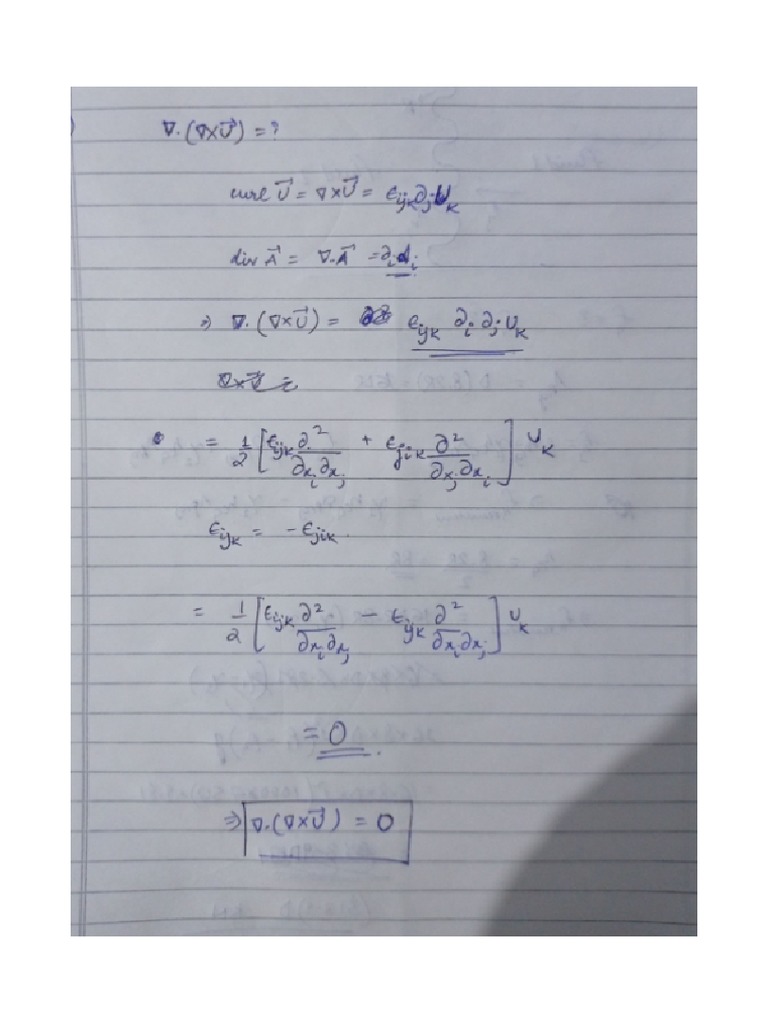 ∇.(∇×U⃗) = ?
curl U⃗ = ∇×U⃗ = ϵijk ∂j Uk
div A⃗ = ∇.A⃗ = ∂i Ai
⇒ ∇.(∇×U⃗) = ϵijk ∂i ∂j Uk
= 1/2 [ϵijk ∂²/∂xi∂xj + ϵjik ∂²/∂xj∂xi] Uk
ϵijk = -ϵjik.
= 1/2 [ϵijk ∂²/∂xi∂xj - ϵijk ∂²/∂xi∂xj] Uk
= 0.
⇒ ∇.(∇×U⃗) = 0